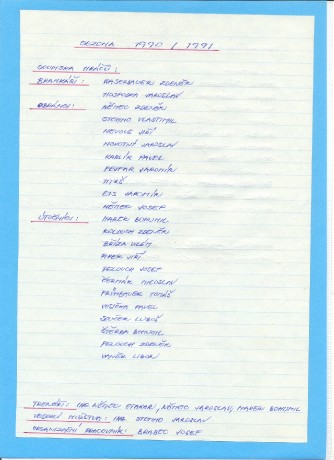 SEZONA 1990 / 1991
SOUPISKA HRÁČŮ:
BRANKÁŘI: KASERBAUER ZDENĚK
HOSPODKA JAROSLAV
OBRÁNCI: NĚMEC ZDENĚK
STOIMO VLASTIMIL
NEVOLE JIŘÍ
NOVOTNÝ JAROSLAV
KARLÍK PAVEL
JAROMÍR
JAROMÍR
NĚMEC JOSEF
ÚTOČNÍCI: MAREK BOHUMIL
KOLOUCH ZDENĚK
BŘÍZA
JIŘÍ
PEJLOUCH JOSEF
ČERMÁK MIROSLAV
TOMÁŠ
VOJIČKA PAVEL
LUBOŠ
ŠTĚRBA BOHUMIL
PEJLOUCH ZDENĚK
LIBOR
TRENÉŘI: ING. NĚMEC OTAKAR, NĚMEC JAROSLAV, MAREK BOHUMIL
VEDOUCÍ MUŽSTVA: ING. STOIMO JAROSLAV
ORGANIZAČNÍ PRACOVNÍK: BRABEC JOSEF